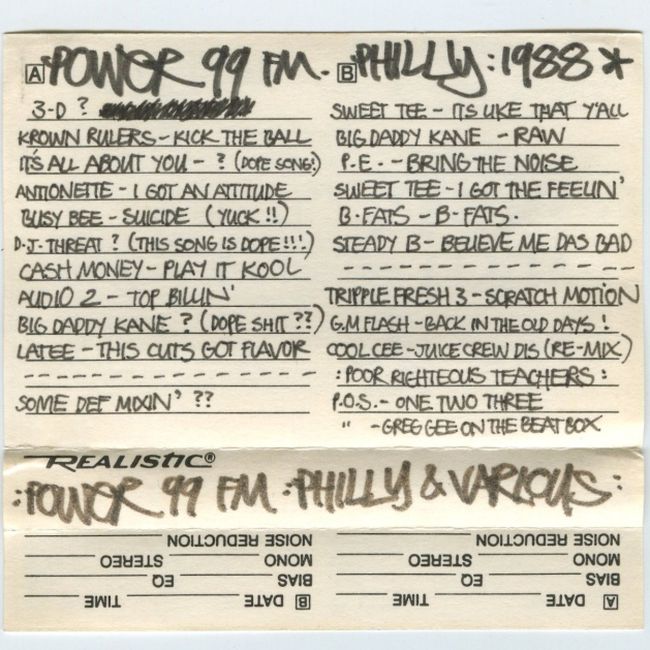 A POWER 99 FM.
3-D ?
KROWN RULERS - KICK THE BALL
IT'S ALL ABOUT YOU - ? (DOPE SONG!)
ANTIONETTE - I GOT AN ATTITUDE
BUSY BEE - SUICIDE (YUCK !!)
D.J. THREAT ? (THIS SONG IS DOPE!!!.)
CASH MONEY - PLAY IT KOOL
AUDIO 2 - TOP BILLIN'
BIG DADDY KANE ? (DOPE SHIT ??)
LATEE - THIS CUTS GOT FLAVOR
SOME DEF MIXIN' ??
B PHILLY : 1988 *
SWEET TEE - ITS LIKE THAT Y'ALL
BIG DADDY KANE - RAW
P.E. - BRING THE NOISE
SWEET TEE - I GOT THE FEELIN'
B-FATS - B-FATS.
STEADY B - BELIEVE ME DAS BAD
TRIPPLE FRESH 3 - SCRATCH MOTION
G.M FLASH - BACK IN THE OLD DAYS !
COOL CEE - JUICE CREW DIS (RE-MIX)
: POOR RIGHTEOUS TEACHERS :
P.O.S. - ONE TWO THREE
" - GREG GEE ON THE BEAT BOX
REALISTIC®
: POWER 99 FM : PHILLY & VARIOUS :
A DATE TIME
BIAS EQ
MONO STEREO
NOISE REDUCTION
B DATE TIME
BIAS EQ
MONO STEREO
NOISE REDUCTION